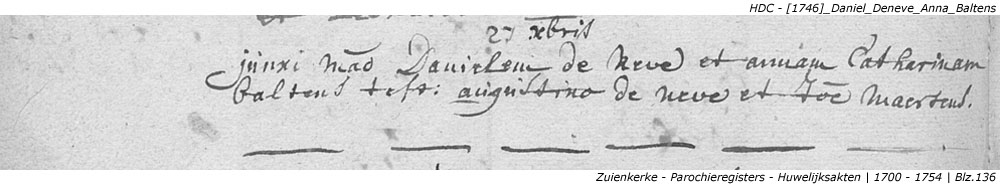 HDC - [1746]_Daniel_Deneve_Anna_Baltens
27 xbris
junxi mād Danielem de neve et annam Catharinam
baltens test: augustino de neve et Joē maertens.
Zuienkerke - Parochieregisters - Huwelijksakten | 1700 - 1754 | Blz.136